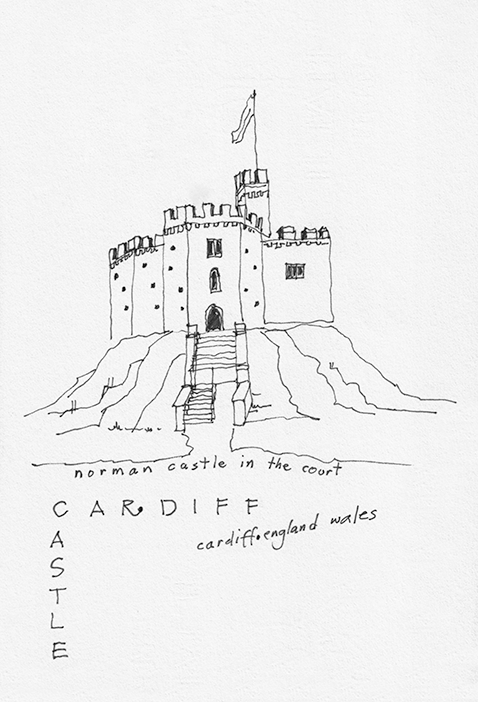 norman castle in the court
CARDIFF
CASTLE
cardiff.england wales